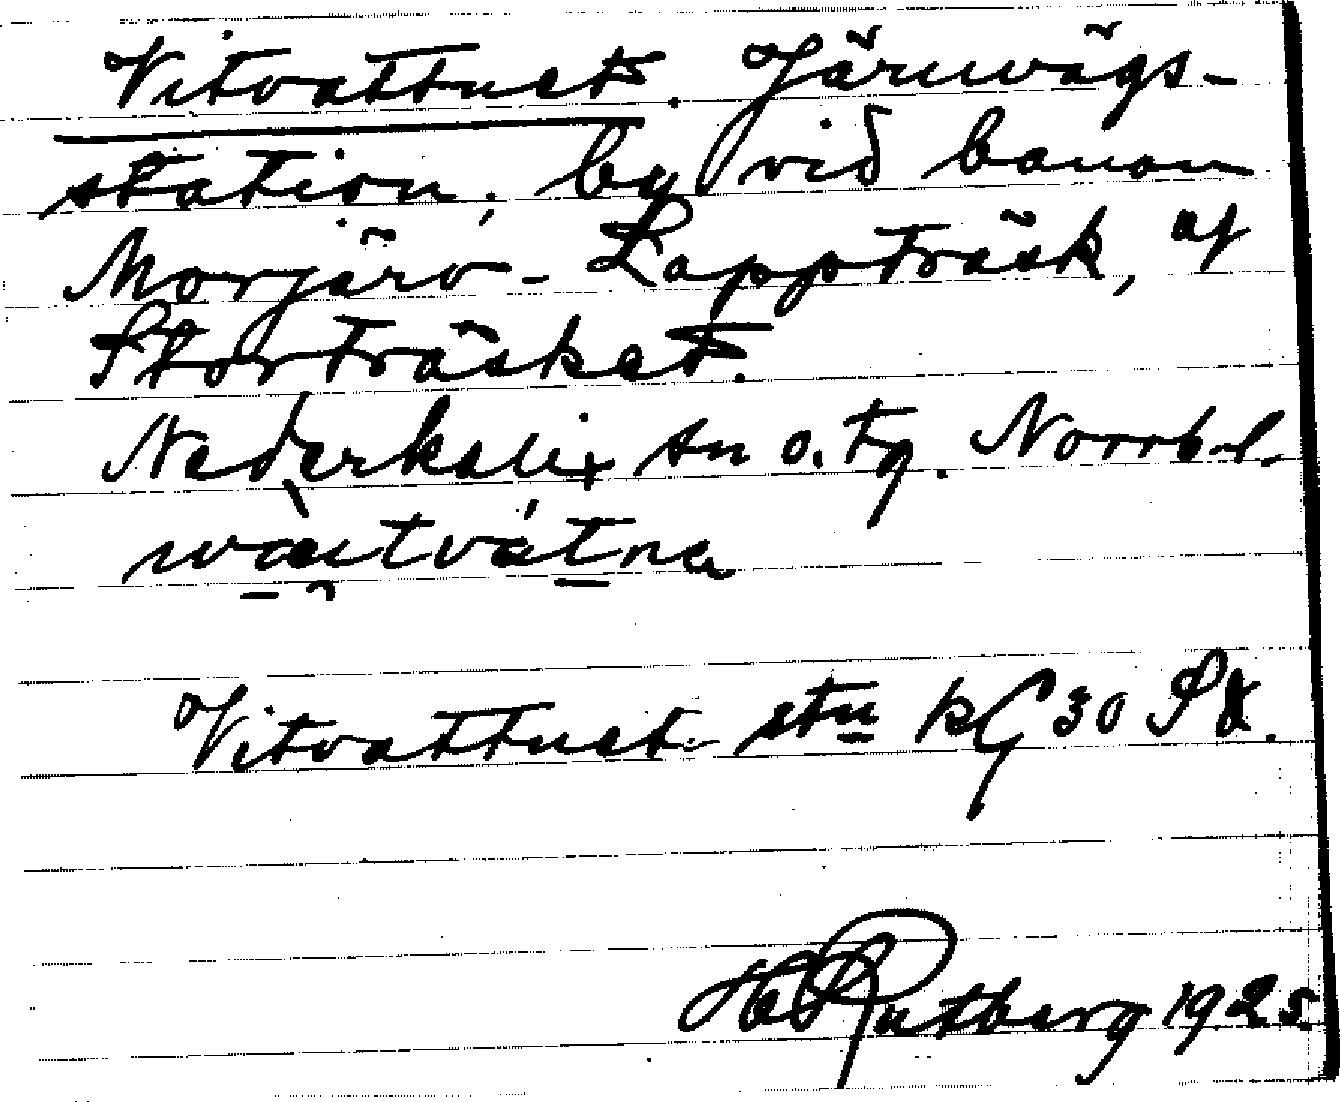 Vitvattnet. Järnvägs-
station, by vid banan
Morjärv - Lappträsk, af
Storträsket.
Nederkalix sn o. tg. Norrb. l.
Vitvattnet stn kG 30 SV.
H Rutberg 1925.